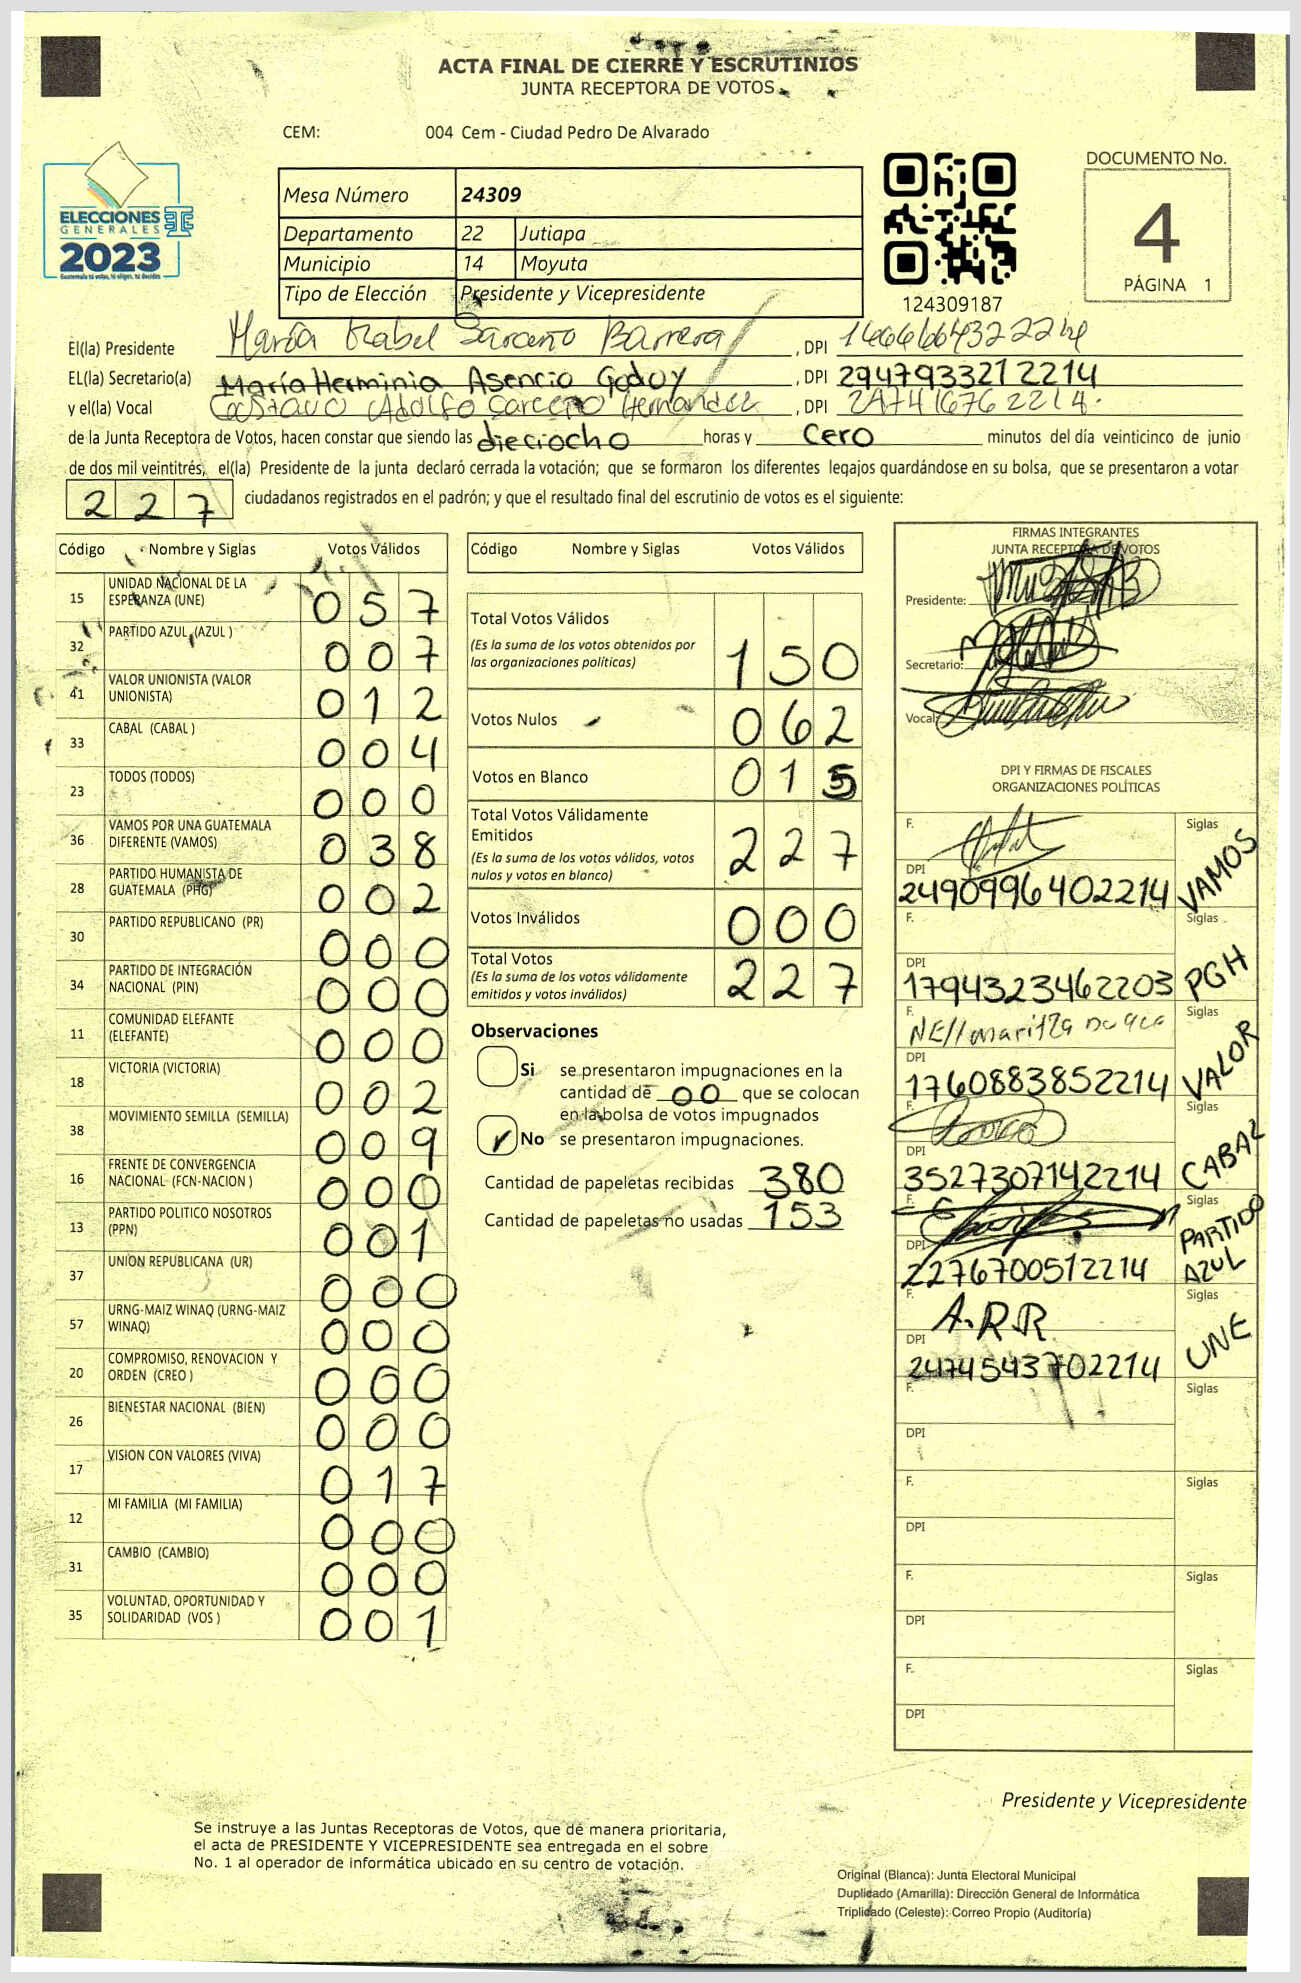 ACTA FINAL DE CIERRE Y ESCRUTINIOS
JUNTA RECEPTORA DE VOTOS
CEM: 004 Cem - Ciudad Pedro De Alvarado
ELECCIONES
GENERALES
2023
Mesa Número 24309
Departamento 22 Jutiapa
Municipio 14 Moyuta
Tipo de Elección Presidente y Vicepresidente
124309187
DOCUMENTO No.
4
PÁGINA 1
El(la) Presidente María Barrera, DPI
EL(la) Secretario(a) María Herminia Asencio Godoy, DPI 2947933212214
y el(la) Vocal Adolfo Hernandez, DPI
de la Junta Receptora de Votos, hacen constar que siendo las dieciocho horas y cero minutos del día veinticinco de junio
de dos mil veintitrés, el(la) Presidente de la junta declaró cerrada la votación; que se formaron los diferentes legajos guardándose en su bolsa, que se presentaron a votar
227 ciudadanos registrados en el padrón; y que el resultado final del escrutinio de votos es el siguiente:
Código Nombre y Siglas Votos Válidos
15 UNIDAD NACIONAL DE LA ESPERANZA (UNE) 057
32 PARTIDO AZUL (AZUL ) 007
41 VALOR UNIONISTA (VALOR UNIONISTA) 012
33 CABAL (CABAL ) 004
23 TODOS (TODOS) 000
36 VAMOS POR UNA GUATEMALA DIFERENTE (VAMOS) 038
28 PARTIDO HUMANISTA DE GUATEMALA (PHG) 002
30 PARTIDO REPUBLICANO (PR) 000
34 PARTIDO DE INTEGRACIÓN NACIONAL (PIN) 000
11 COMUNIDAD ELEFANTE (ELEFANTE) 000
18 VICTORIA (VICTORIA) 002
38 MOVIMIENTO SEMILLA (SEMILLA) 009
16 FRENTE DE CONVERGENCIA NACIONAL (FCN-NACION ) 000
13 PARTIDO POLITICO NOSOTROS (PPN) 001
37 UNION REPUBLICANA (UR) 000
57 URNG-MAIZ WINAQ (URNG-MAIZ WINAQ) 000
20 COMPROMISO, RENOVACION Y ORDEN (CREO ) 000
26 BIENESTAR NACIONAL (BIEN) 000
17 VISION CON VALORES (VIVA) 017
12 MI FAMILIA (MI FAMILIA) 000
31 CAMBIO (CAMBIO) 000
35 VOLUNTAD, OPORTUNIDAD Y SOLIDARIDAD (VOS ) 001
Código Nombre y Siglas Votos Válidos
Total Votos Válidos 150
(Es la suma de los votos obtenidos por
las organizaciones políticas)
Votos Nulos 062
Votos en Blanco 015
Total Votos Válidamente
Emitidos 227
(Es la suma de los votos válidos, votos
nulos y votos en blanco)
Votos Inválidos 000
Total Votos 227
(Es la suma de los votos válidamente
emitidos y votos inválidos)
Observaciones
Si se presentaron impugnaciones en la
cantidad de 00 que se colocan
en la bolsa de votos impugnados
No se presentaron impugnaciones.
Cantidad de papeletas recibidas 380
Cantidad de papeletas no usadas 153
FIRMAS INTEGRANTES
JUNTA RECEPTORA DE VOTOS
Presidente:
Secretario:
Vocal:
DPI Y FIRMAS DE FISCALES
ORGANIZACIONES POLÍTICAS
F. Siglas VAMOS
DPI 2490996402214
F. Siglas PGH
DPI 1794323462203
F. Siglas VALOR
DPI 1760883852214
F. Siglas CABAL
DPI 3527307142214
F. Siglas PARTIDO AZUL
DPI 2276700512214
F. A.R.R Siglas UNE
DPI 2474543702214
F. Siglas
DPI
F. Siglas
DPI
F. Siglas
DPI
F. Siglas
DPI
Presidente y Vicepresidente
Se instruye a las Juntas Receptoras de Votos, que de manera prioritaria,
el acta de PRESIDENTE Y VICEPRESIDENTE sea entregada en el sobre
No. 1 al operador de informática ubicado en su centro de votación.
Original (Blanca): Junta Electoral Municipal
Duplicado (Amarilla): Dirección General de Informática
Triplicado (Celeste): Correo Propio (Auditoría)